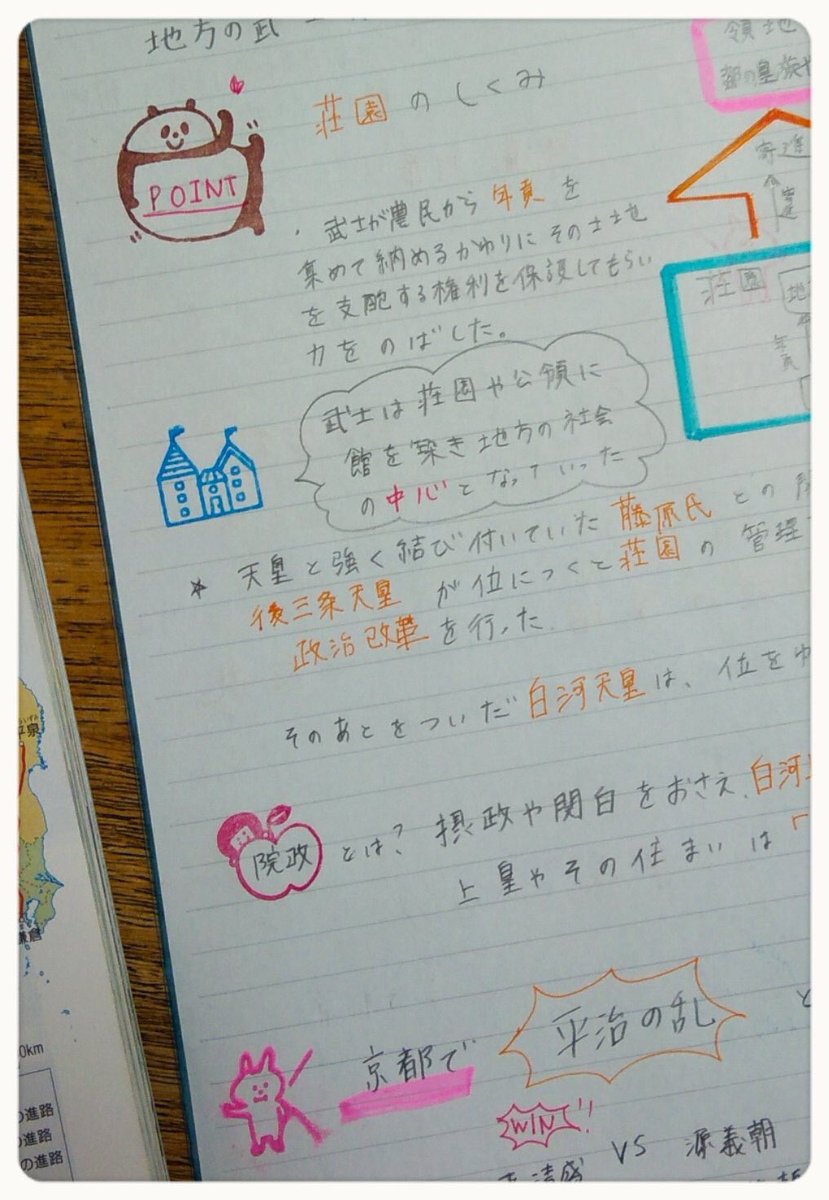 地方の武
荘園のしくみ
POINT
・武士が農民から年貢を
集めて納めるかわりにその土地
を支配する権利を保護してもらい
力をのばした。
領地
都の皇族や
寄進
寄進
荘園
地
年貢
武士は荘園や公領に
館を築き地方の社会
の中心となっていった
* 天皇と強く結び付いていた藤原氏との
後三条天皇が位につくと荘園の管理
政治改革を行った.
そのあとをついだ白河天皇は、位をゆ
院政とは?摂政や関白をおさえ、白河上
上皇やその住まいは「
京都で平治の乱と
WIN!!
清盛 VS 源義朝
平泉
鎌倉
0km
の進路
の進路
の進路